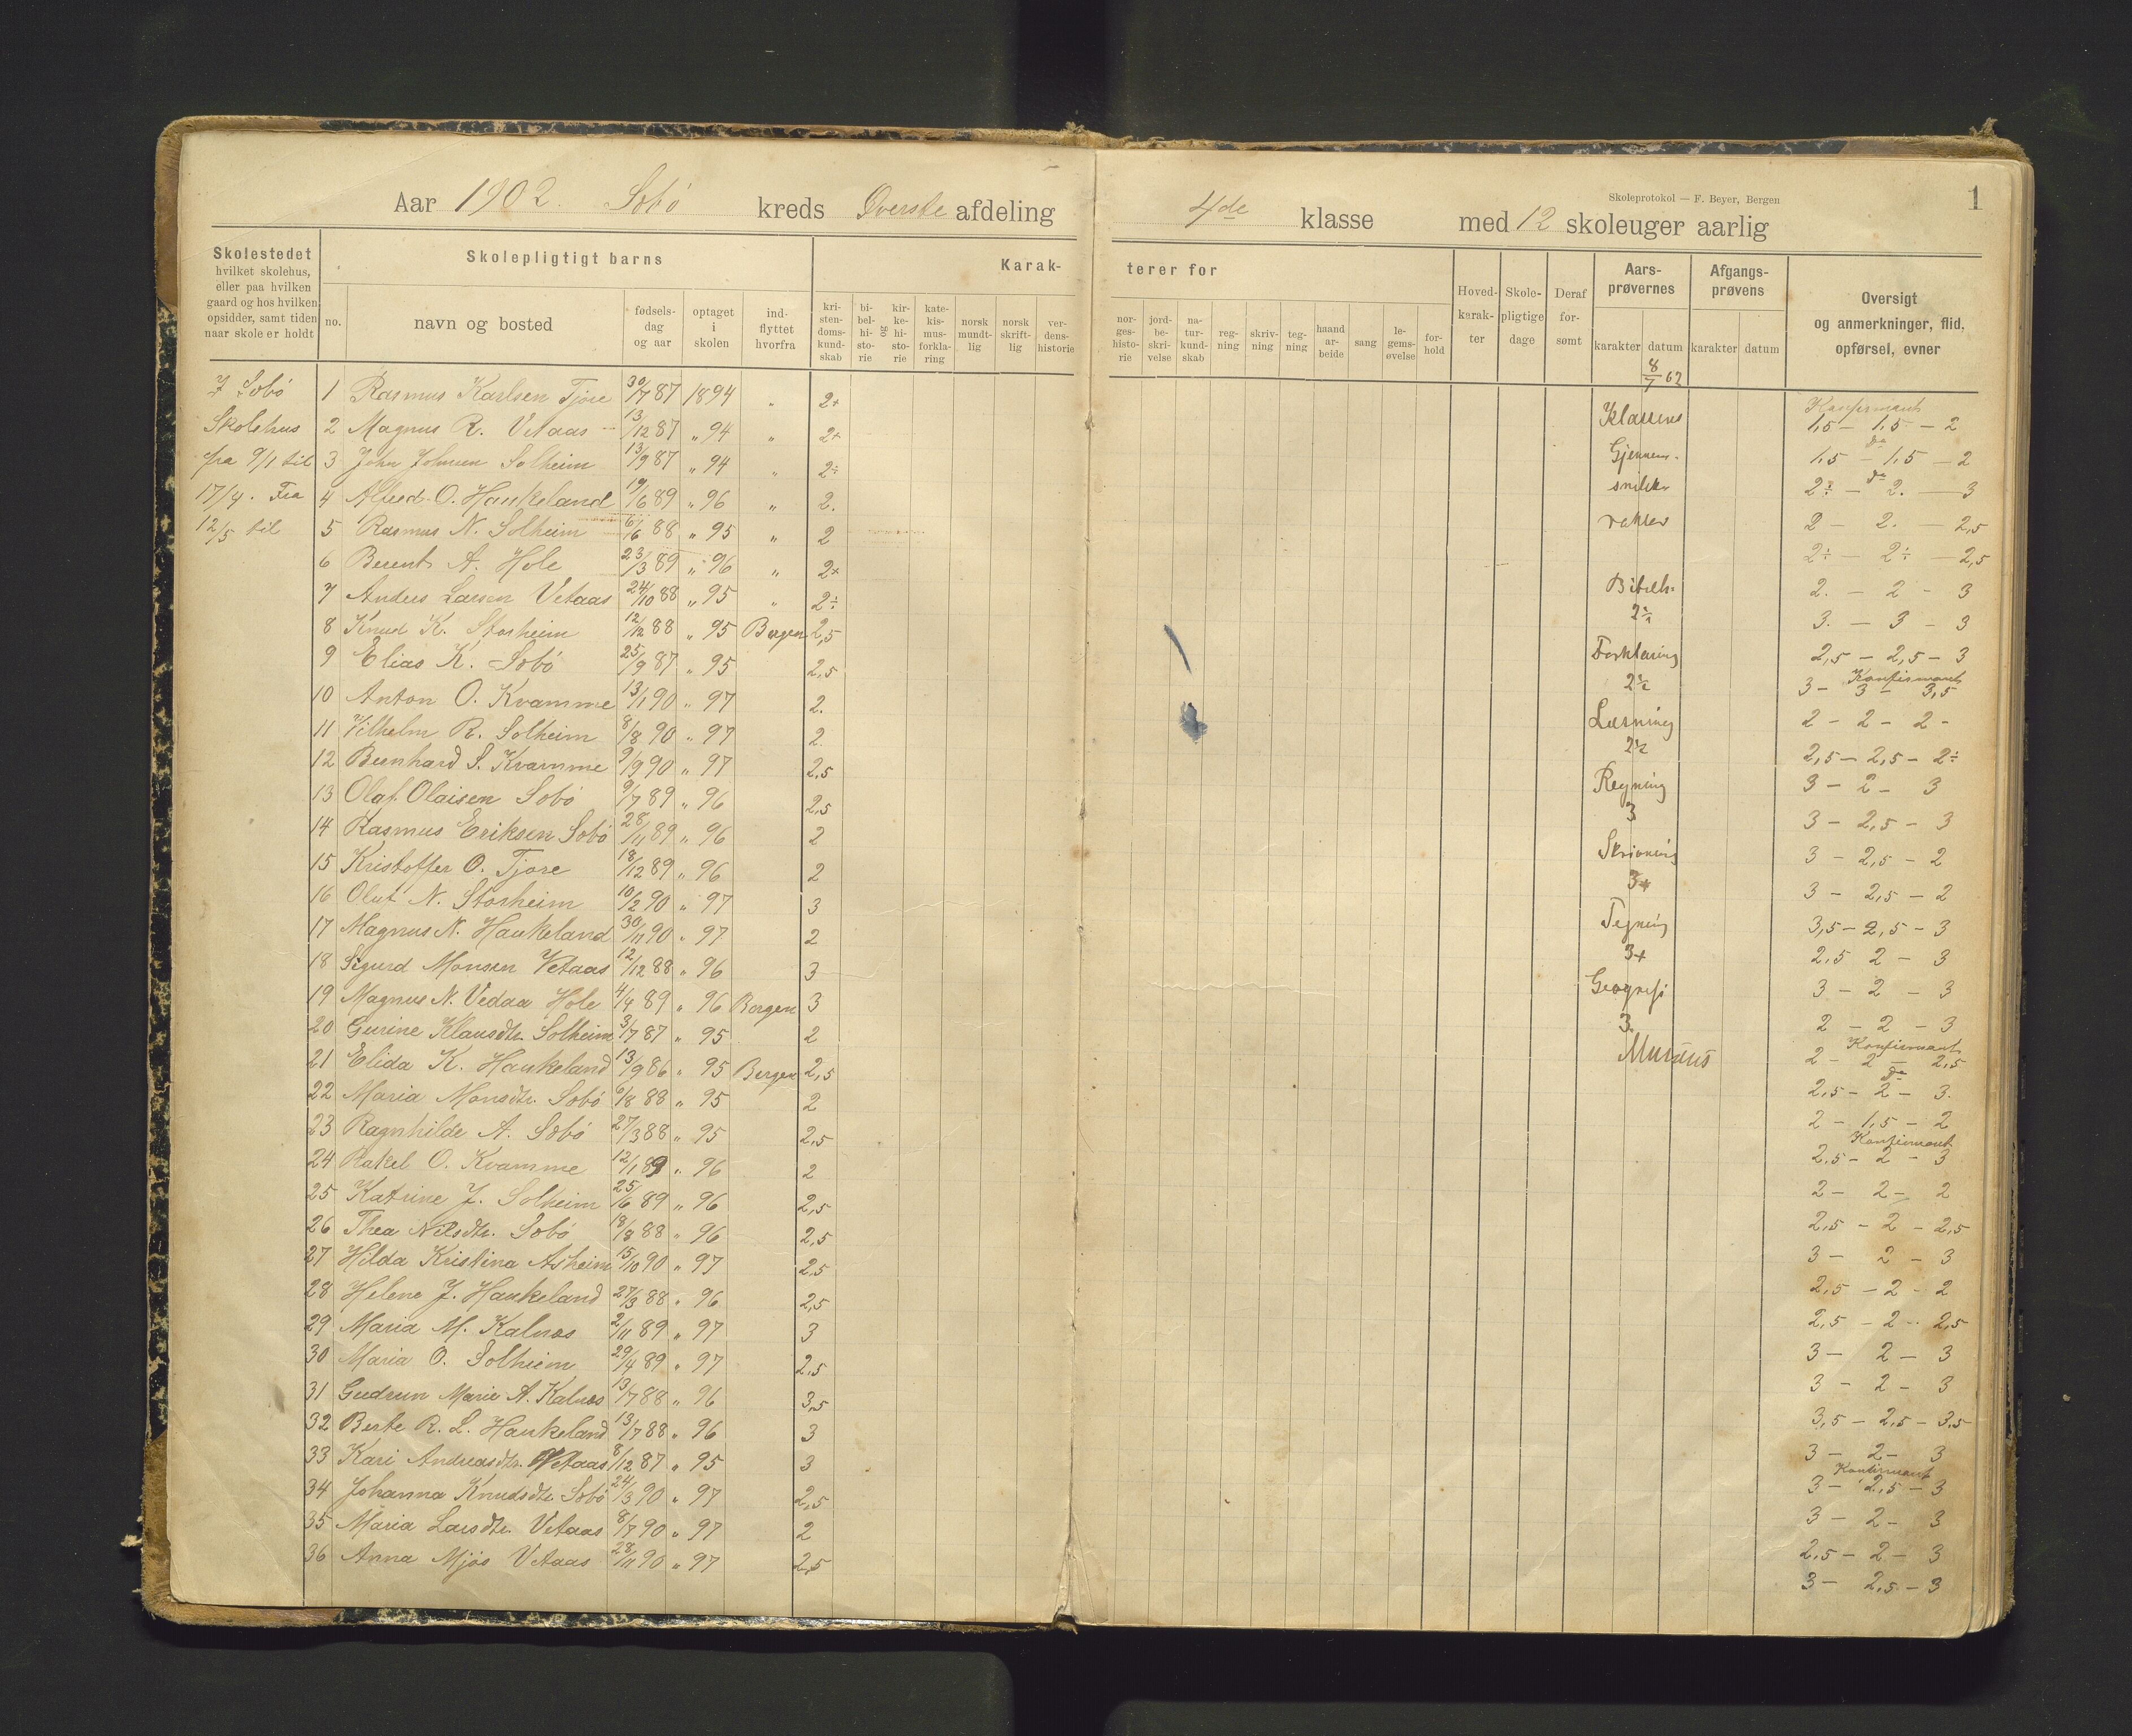 Skoleprotokol — F. Beyer, Bergen
1
Aar 1902. Sobö kreds Øverste afdeling 4de klasse med 12 skoleuger aarlig
Skolestedet
hvilket skolehus,
eller paa hvilken
gaard og hos hvilken
opsidder, samt tiden
naar skole er holdt
Skolepligtigt barns
no.
navn og bosted
fødsels-
dag
og aar
optaget
i
skolen
ind-
flyttet
hvorfra
Karak-
terer for
kri-
sten-
doms-
kund-
skab
bi-
bel-
hi-
sto-
rie
og
kir-
ke-
hi-
sto-
rie
kate-
kis-
mus-
forkla-
ring
norsk
mundt-
lig
norsk
skrift-
lig
ver-
dens-
historie
nor-
ges-
histo-
rie
jord-
be-
skri-
velse
na-
tur-
kund-
skab
reg-
ning
skriv-
ning
teg-
ning
haand
ar-
beide
sang
le-
gems-
øvelse
for-
hold
Hoved-
karak-
ter
Skole-
pligtige
dage
Deraf
for-
sømt
Aars-
prøvernes
karakter datum
8/7 02
Afgangs-
prøvens
karakter datum
Oversigt
og anmerkninger, flid,
opførsel, evner
I Sobö
Skolehus
fra 9/1 til
17/4. Fra
12/5 til
1 Rasmus Karlsen Tjore 30/7 87 1894 " 2+ Konfirmant 1,5 — 1,5 — 2
2 Magnus R. Vetaas 13/12 87 " 94 " 2+ do 1,5 — 1,5 — 2
3 John Johnsen Solheim 13/9 87 " 94 " 2÷ do 2÷ — 2. — 3
4 Alfred O. Haukeland 19/6 89 " 96 " 2. 2 — 2. — 2,5
5 Rasmus N. Solheim 6/6 88 " 95 " 2 2÷ — 2÷ — 2,5
6 Berent A. Hole 23/3 89 " 96 " 2+ 2. — 2 — 3
7 Anders Larsen Vetaas 24/10 88 " 95 " 2÷ 3. — 3 — 3
8 Knud K. Storheim 12/12 88 " 95 Bergen 2,5 2,5 — 2,5 — 3
9 Elias K. Sobö 25/9 87 " 95 2,5 Konfirmant 3 — 3 — 3,5
10 Anton O. Kvamme 13/1 90 " 97 2. 2 — 2 — 2 -
11 Vilhelm R. Solheim 8/8 90 " 97 2. 2,5 — 2,5 — 2÷
12 Bernhard S. Kvamme 9/9 90 " 97 2,5 3 — 2 — 3
13 Olaf Olaisen Sobö 9/7 89 " 96 2,5 3 — 2,5 — 3
14 Rasmus Eriksen Sobö 28/11 89 " 96 2 3 — 2,5 — 2
15 Kristoffer O. Tjore 18/12 89 " 96 2 3 — 2,5 — 2
16 Oluf N. Storheim 10/2 90 " 97 3 3,5 — 2,5 — 3
17 Magnus N. Haukeland 30/11 90 " 97 2 2,5 2 — 3
18 Sigurd Monsen Vetaas 12/12 88 " 96 3 3 — 2 — 3
19 Magnus N. Vedaa Hole 4/4 89 " 96 Bergen 3 2 — 2 — 3
20 Gurine Klausdtr. Solheim 3/7 87 " 95 2 Konfirmant 2 — 2 — 2,5
21 Elida K. Haukeland 13/9 86 " 95 Bergen 2,5 do 2,5 — 2 — 3.
22 Maria Monsdtr. Sobö 9/8 88 " 95 2 2 — 1,5 — 2
23 Ragnhilde A. Sobö 27/3 88 " 95 2,5 Konfirmant 2,5 — 2 — 3
24 Rakel O. Kvamme 12/1 89 " 96 2 2 — 2 — 2
25 Katrine J. Solheim 25/6 89 " 96 2,5 2,5 — 2 — 2,5
26 Thea Nilsdtr. Sobö 18/8 88 " 96 2,5 3 — 2 — 3
27 Hilda Kristina Asheim 15/10 90 " 97 2,5 2,5 — 2 - 2
28 Helene J. Haukeland 27/3 88 " 96 2,5 2,5 — 2 - 2,5
29 Maria M. Kalnæs 2/11 89 " 97 3 3 — 2 — 3
30 Maria O. Solheim 29/4 89 " 97 2,5 3 — 2 — 3
31 Gudrun Marie A. Kalnæs 13/7 88 " 96 3,5 3,5 — 2,5 — 3,5
32 Berte R. L. Haukeland 13/7 88 " 96 3 3 — 2 — 3
33 Kari Andreasdtr. Vetaas 8/12 87 " 95 3 Konfirmant 3 — 2,5 — 3
34 Johanna Knudsdtr Sobö 24/3 90 " 97 2,5 3 — 2 — 3
35 Maria Larsdtr. Vetaas 8/7 90 " 97 2 2,5 — 2 — 3
36 Anna Mjös Vetaas 28/11 90 " 97 2,5 3 — 2,5 — 3
Klassens
Gjennem-
snitska-
rakter
Bibelh.
2½
Forklaring
2½
Læsning
2½
Regning
3
Skrivning
3+
Tegning
3+
Geografi
3.